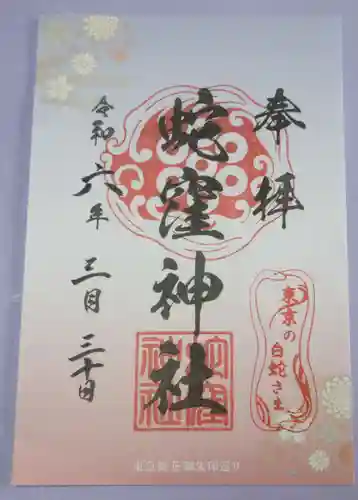 奉拝
蛇窪神社
令和六年三月三十日
東京の
白蛇さま
蛇窪神社